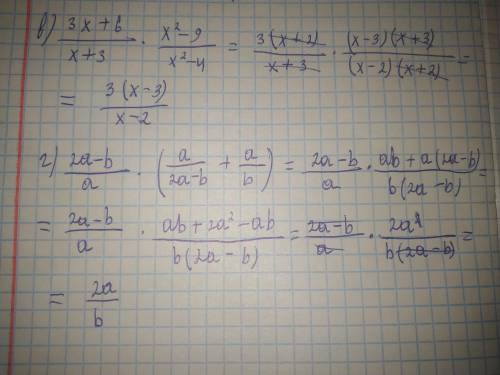 в) (3x+6)/(x+3) · (x²-9)/(x²-4) = (3(x+2))/(x+3) · ((x-3)(x+3))/((x-2)(x+2)) =
= (3(x-3))/(x-2)
г) (2a-b)/a · (a/(2a-b) + a/b) = (2a-b)/a · (ab+a(2a-b))/(b(2a-b)) =
= (2a-b)/a · (ab+2a²-ab)/(b(2a-b)) = (2a-b)/a · 2a²/(b(2a-b)) =
= 2a/b